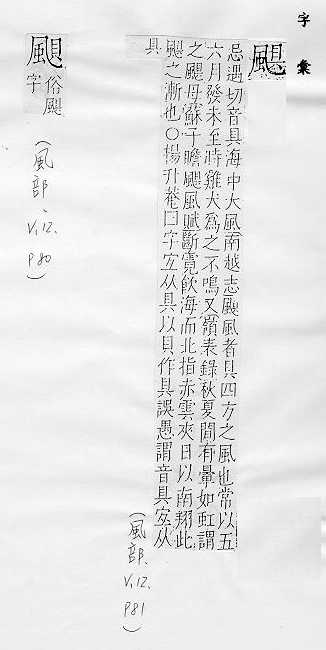 字彙
颶
忌遇切音具海中大風南越志颶風者具四方之風也常以五
六月發未至時雞犬爲之不鳴又嶺表錄秋夏間有暈如虹謂
之颶母蘇子瞻颶風賦斷霓飲海而北指赤雲夾日以南翔此
颶之漸也○楊升菴曰字宜从具以貝作具誤愚謂音具宜从
具
(風部、V.12. P81)
俗颶
字
(風部、V.12. P80)